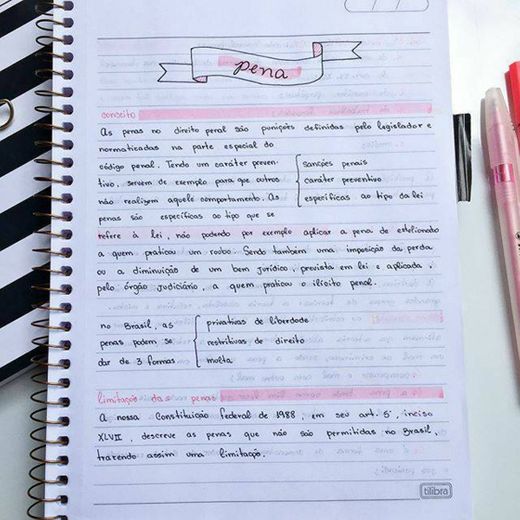 pena
conceito
As penas no direito penal são punições definidas pelo legislador e
normatizadas na parte especial do
código penal. Tendo um caráter preven-
tivo, servem de exemplo para que outros
não realizem aquele comportamento. As
penas são específicas ao tipo que se
sanções penais
caráter preventivo
específicas ao tipo da lei
refere à lei, não podendo por exemplo aplicar a pena de estelionato
a quem praticou um roubo. Sendo também uma imposição da perda
ou a diminuição de um bem jurídico, prevista em lei e aplicada,
pelo órgão judiciário, a quem praticou o ilícito penal.
no Brasil, as
penas podem se
dar de 3 formas
privativas de liberdade
restritivas de direito
multa
limitação das penas
A nossa Constituição federal de 1988, em seu art. 5º, inciso
XLVII, descreve as penas que não são permitidas no Brasil,
trazendo assim uma limitação.
tilibra